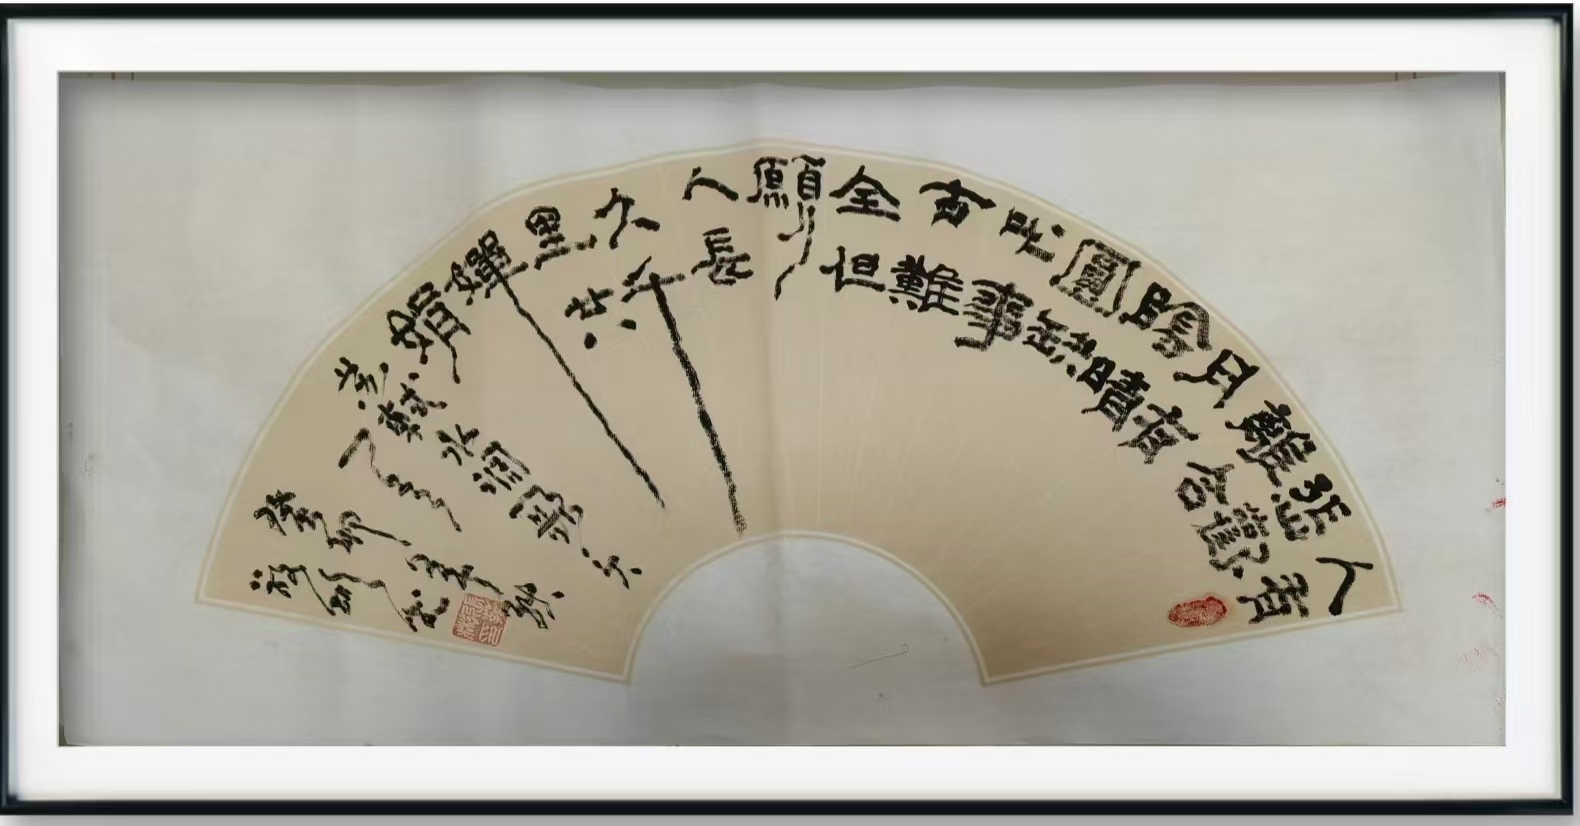 人有
悲歡
離合
月有
陰晴
圓缺
此事
古難
全但
願
人長
久千
里共
嬋
娟
蘇軾水調歌头
癸卯年秋